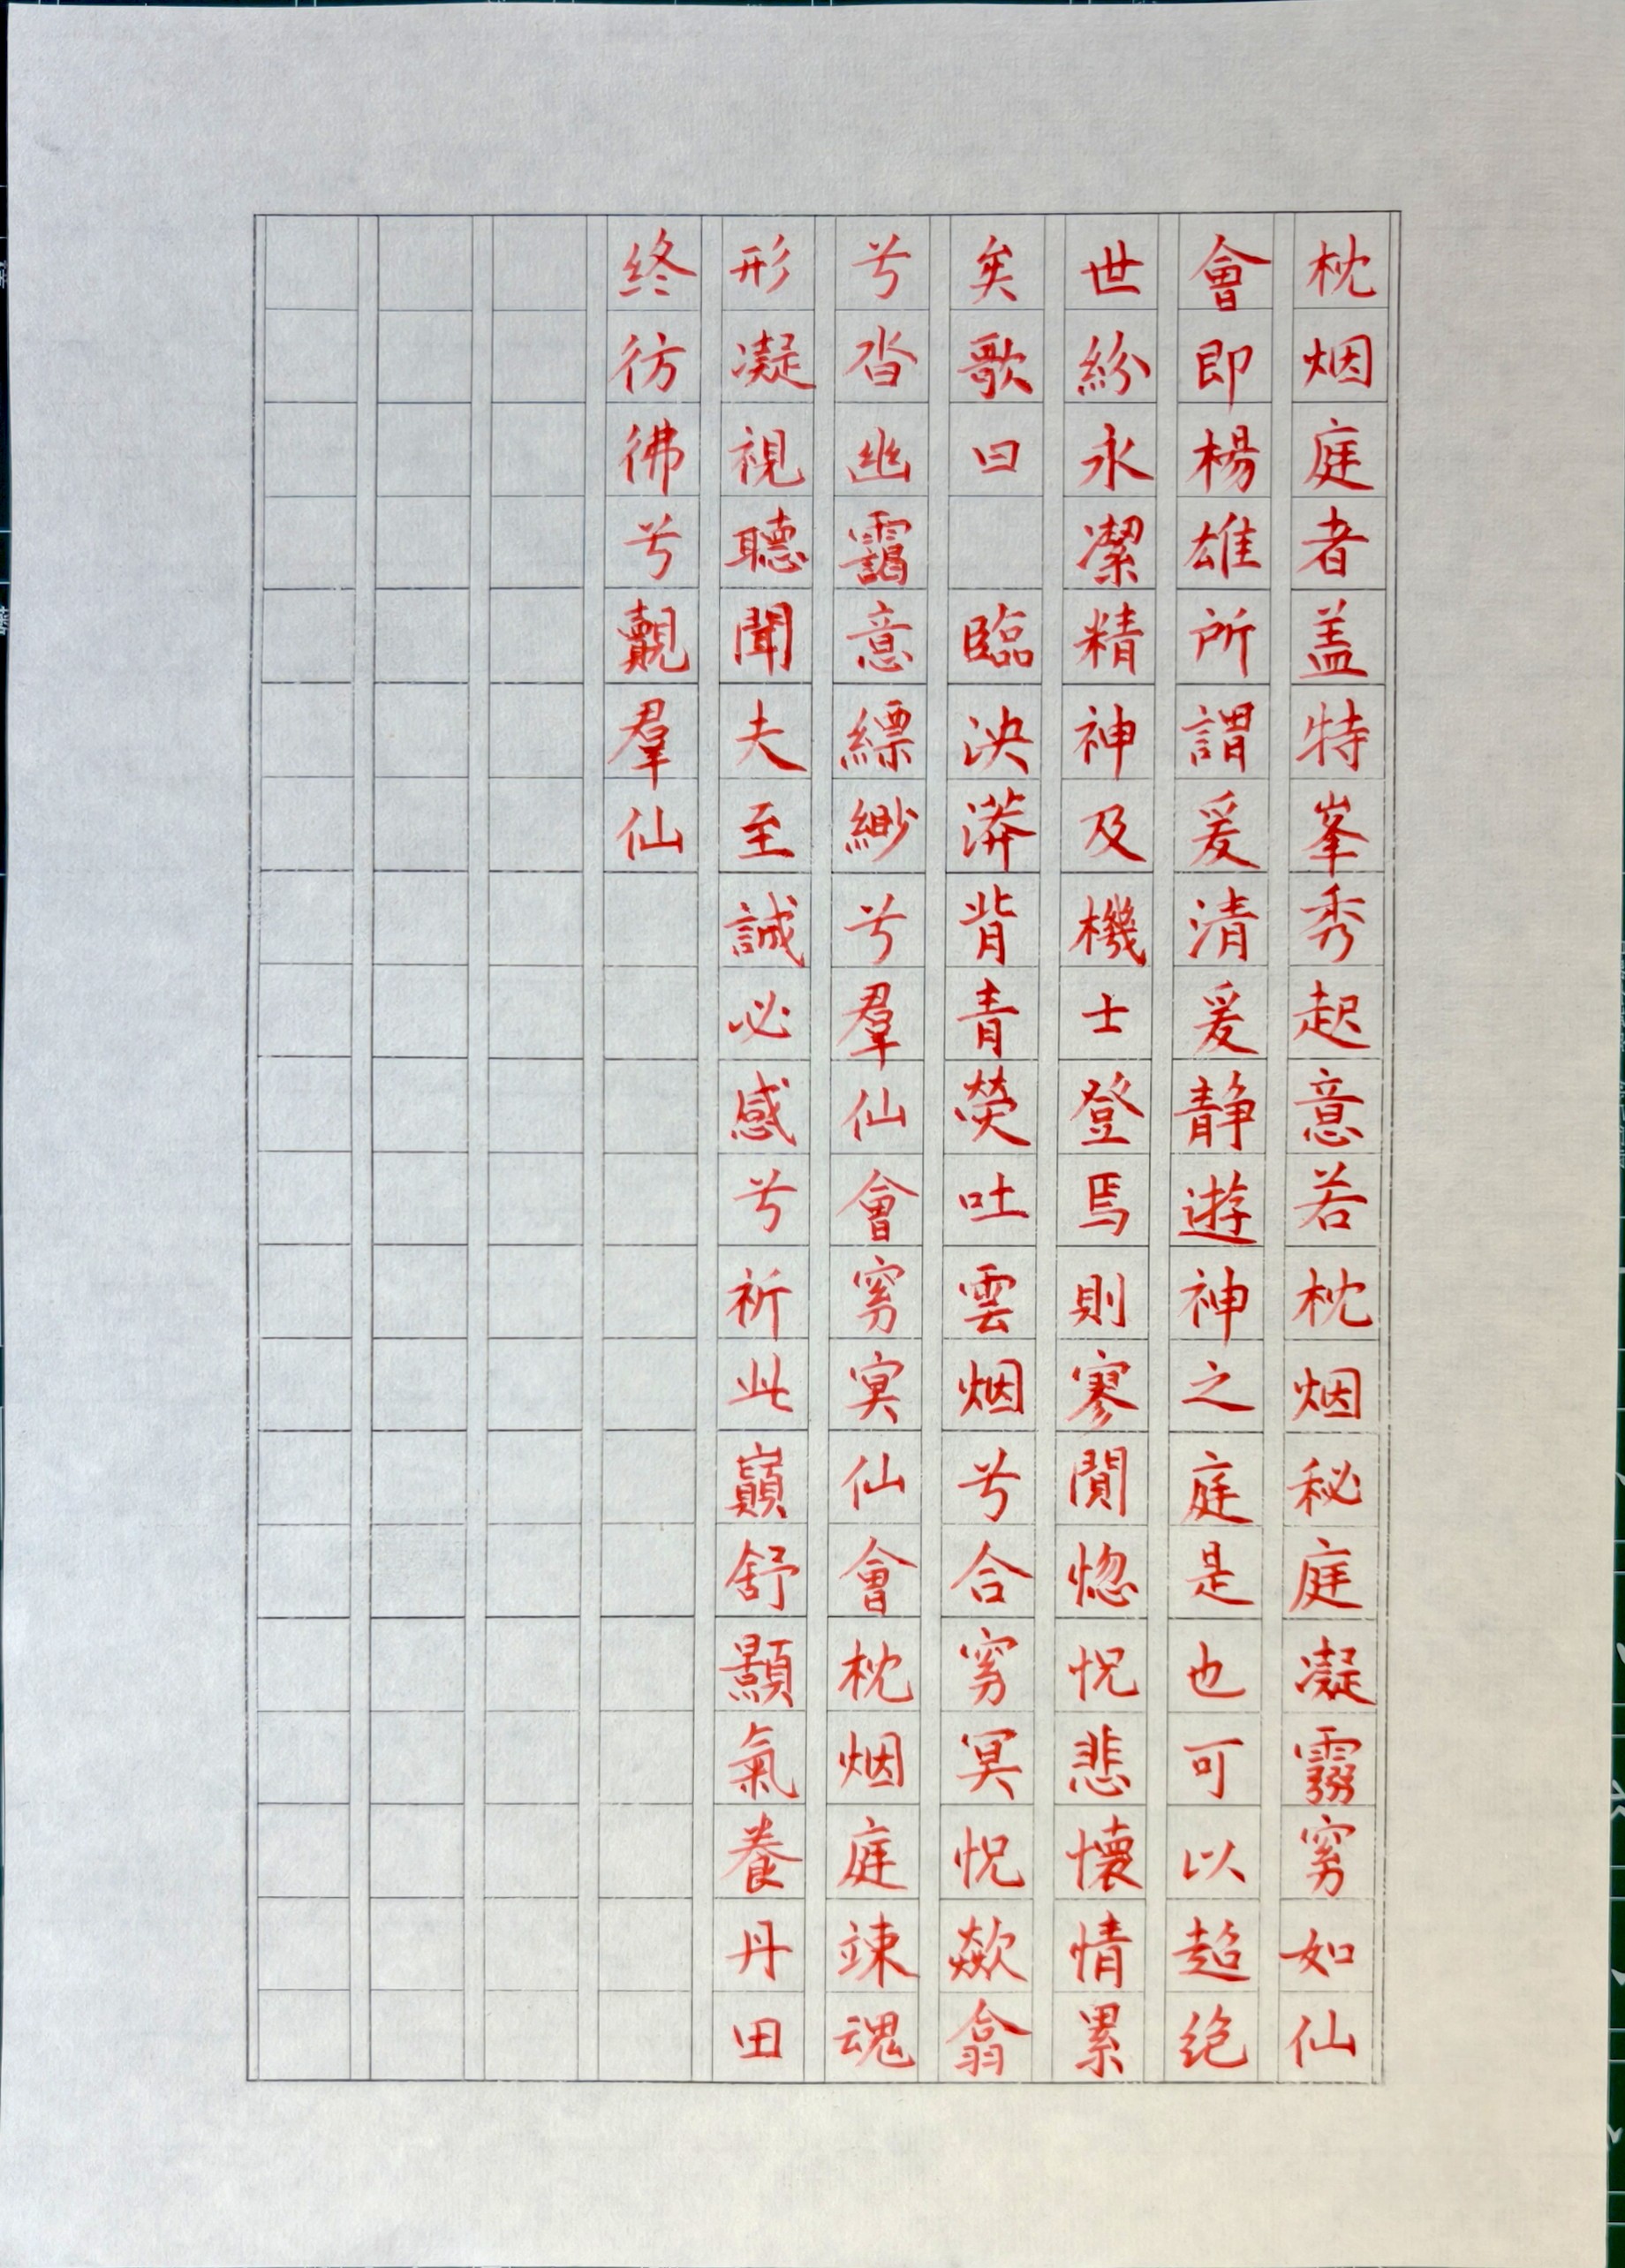 枕烟庭者盖特峯秀起意若枕烟秘庭凝霧窈如仙
會即楊雄所謂爰清爰静遊神之庭是也可以超绝
世紛永潔精神及機士登焉則寥閴惚怳悲懷情累
矣歌曰 臨泱漭背青熒吐雲烟兮合窈冥怳歘翕
兮沓幽靄意縹緲兮羣仙會窈冥仙會枕烟庭竦魂
形凝視聽聞夫至誠必感兮祈此巔舒顥氣養丹田
终彷彿兮覿羣仙